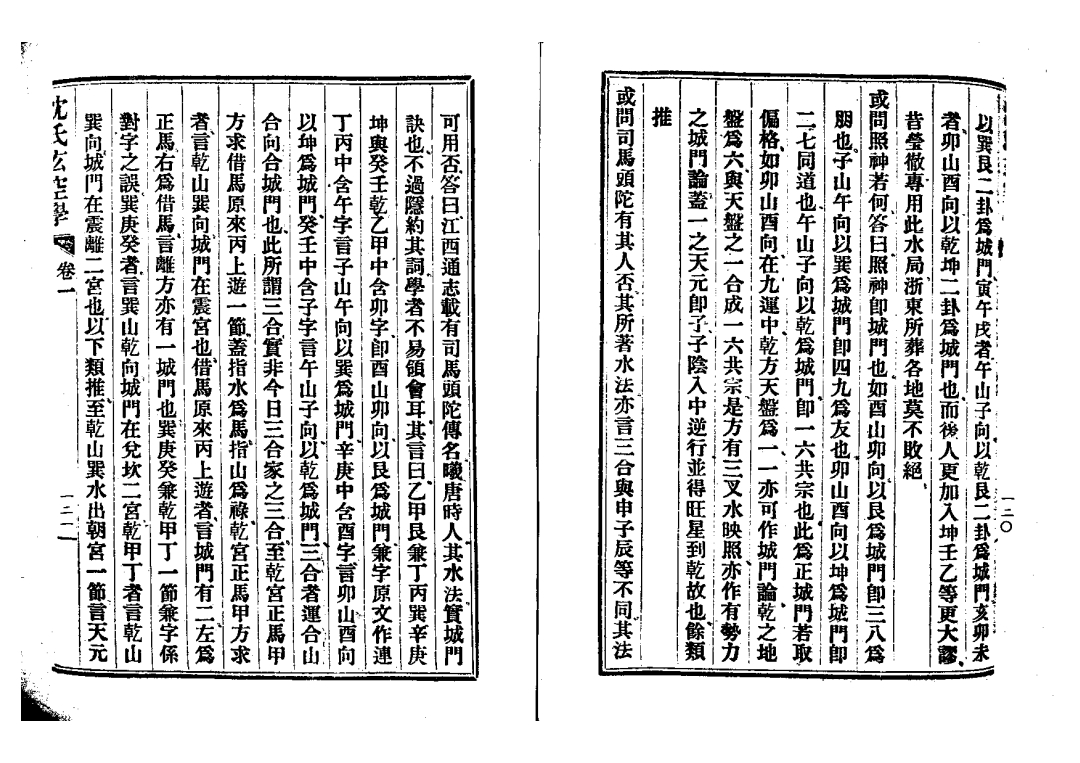 以巽艮二卦爲城門寅午戌者午山子向以乾艮二卦爲城門亥卯未
者卯山酉向以乾坤二卦爲城門也而後人更加入坤壬乙等更大謬
昔瑩徹專用此水局浙東所葬各地莫不敗絕
或問照神若何答曰照神卽城門也如酉山卯向以艮爲城門卽三八爲
朋也子山午向以巽爲城門卽四九爲友也卯山酉向以坤爲城門卽
二七同道也午山子向以乾爲城門卽一六共宗也此爲正城門若取
偏格如卯山酉向在九運中乾方天盤爲一一亦可作城門論乾之地
盤爲六與天盤之一合成一六共宗是方有三叉水映照亦作有勢力
之城門論蓋一之天元卽子子陰入中逆行並得旺星到乾故也餘類
推
或問司馬頭陀有其人否其所著水法亦言三合與申子辰等不同其法
一二〇
可用否答曰江西通志載有司馬頭陀傳名曦唐時人其水法實城門
訣也不過隱約其詞學者不易領會耳其言曰乙甲艮兼丁丙巽辛庚
坤與癸壬乾乙甲中含卯字卽酉山卯向以艮爲城門兼字原文作連
丁丙中含午字言子山午向以巽爲城門辛庚中含酉字言卯山酉向
以坤爲城門癸壬中含子字言午山子向以乾爲城門三合者運合山
合向合城門也此所謂三合實非今日三合家之三合至乾宮正馬甲
方求借馬原來丙上遊一節蓋指水爲馬指山爲祿乾宮正馬甲方求
者言乾山巽向城門在震宮也借馬原來丙上遊者言城門有二左爲
正馬右爲借馬言離方亦有一城門也巽庚癸兼乾甲丁一節兼字係
對字之誤巽庚癸者言巽山乾向城門在兌坎二宮乾甲丁者言乾山
巽向城門在震離二宮也以下類推至乾山巽水出朝宮一節言天元
沈氏玄空學
卷一
一二一